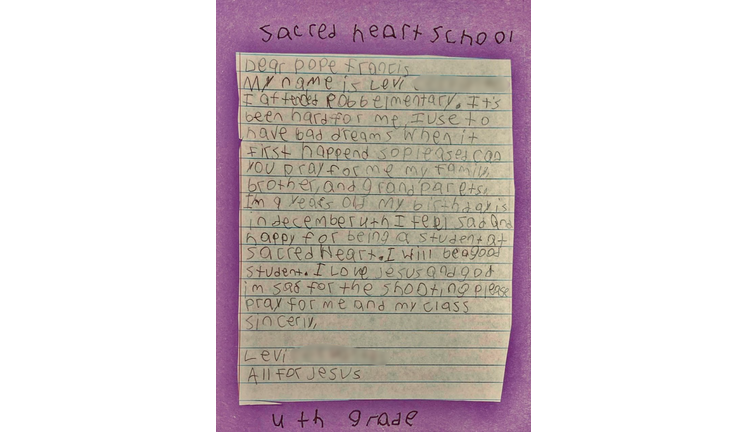 sacred heart school
Dear pope francis
My name is Levi
I attened Robb elmentary. It's
been hard for me, I use to
have bad dreams when it
first happend so pleased can
you pray for me my family,
brother, and grandparets.
I'm 9 years old my birthday is
in december 4th I feel sad and
happy for being a student at
sacred Heart. I will be a good
student. I Love jesus and god
im sad for the shooting please
pray for me and my class
sincerly,
Levi
All for Jesus
4th grade